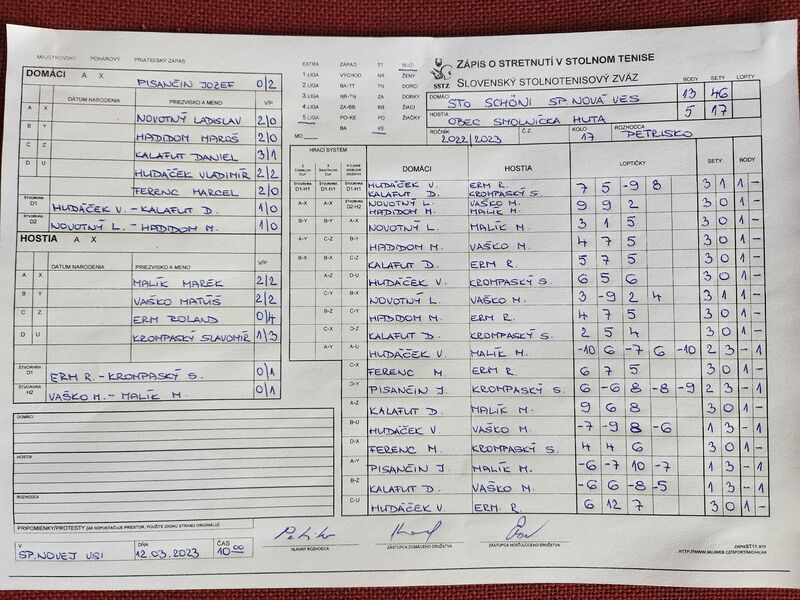 MAJSTROVSKÝ POHÁROVÝ PRIATEĽSKÝ ZÁPAS
DOMÁCI A X
PISANČIN JOZEF 0/2
DÁTUM NARODENIA PRIEZVISKO A MENO V/P
A X NOVOTNÝ LADISLAV 2/0
B Y HADIDOM MAROŠ 2/0
C Z KALAFUT DANIEL 3/1
D U HUDÁČEK VLADIMÍR 2/2
FERENC MARCEL 2/0
ŠTVORHRA D1 HUDÁČEK V. - KALAFUT D. 1/0
ŠTVORHRA D2 NOVOTNÝ L. - HADIDOM M. 1/0
HOSTIA A X
DÁTUM NARODENIA PRIEZVISKO A MENO V/P
A X MALÍK MAREK 2/2
B Y VAŠKO MATÚŠ 2/2
C Z ERM ROLAND 0/4
D U KROMPASKÝ SLAVOMÍR 1/3
ŠTVORHRA D1 ERM R. - KROMPASKÝ S. 0/1
ŠTVORHRA H2 VAŠKO M. - MALÍK M. 0/1
DOMÁCI
HOSTIA
ROZHODCA
PRIPOMIENKY/PROTESTY (AK NEPOSTAČUJE PRIESTOR, POUŽITE ZADNÚ STRANU ORIGINÁLU)
V SP.NOVEJ VSI DŇA 12.03.2023 ČAS 10 00
EXTRA ZÁPAD TT MUŽI
1.LIGA VÝCHOD NR ŽENY
2.LIGA BA-TT TN DORCI
3.LIGA NR-TN ZA DORKY
4.LIGA ZA-BB BB ŽIACI
5.LIGA PO-KE PO ŽIAČKY
BA KE
MO
SSTZ
ZÁPIS O STRETNUTÍ V STOLNOM TENISE
SLOVENSKÝ STOLNOTENISOVÝ ZVÄZ
BODY SETY LOPTY
DOMÁCI STO SCHÖNI SP.NOVÁ VES 13 46
HOSTIA OBEC SMOLNÍCKA HUTA 5 17
ROČNÍK 2022/2023 Č.Z. KOLO 17 ROZHODCA PETRISKO
HRACÍ SYSTÉM
DOMÁCI HOSTIA LOPTIČKY SETY BODY
ŠTVORHRA D1-H1 ŠTVORHRA D1-H1 ŠTVORHRA D1-H1 HUDÁČEK V. KALAFUT D. ERM R. KROMPASKÝ S. 7 5 -9 8 3 1 1 -
A-X A-X ŠTVORHRA D2-H2 NOVOTNÝ L. HADIDOM M. VAŠKO M. MALÍK M. 9 9 2 3 0 1 -
B-Y B-Y A-X NOVOTNÝ L. MALÍK M. 3 1 5 3 0 1 -
A-Y C-Z B-Y HADIDOM M. VAŠKO M. 4 7 5 3 0 1 -
B-X B-X C-Z KALAFUT D. ERM R. 5 7 5 3 0 1 -
A-Z D-U HUDÁČEK V. KROMPASKÝ S. 6 5 6 3 0 1 -
C-Y B-X NOVOTNÝ L. VAŠKO M. 3 -9 2 4 3 1 1 -
B-Z C-Y HADIDOM M. ERM R. 4 7 5 3 0 1 -
C-X D-Z KALAFUT D. KROMPASKÝ S. 2 5 4 3 0 1 -
A-Y A-U HUDÁČEK V. MALÍK M. -10 6 -7 6 -10 2 3 - 1
C-X FERENC M. ERM R. 6 7 5 3 0 1 -
D-Y PISANČIN J. KROMPASKÝ S. 6 -6 8 -8 -9 2 3 - 1
A-Z KALAFUT D. MALÍK M. 9 6 8 3 0 1 -
B-U HUDÁČEK V. VAŠKO M. -7 -9 8 -6 1 3 - 1
D-X FERENC M. KROMPASKÝ S. 4 4 6 3 0 1 -
A-Y PISANČIN J. MALÍK M. -6 -7 10 -7 1 3 - 1
B-Z KALAFUT D. VAŠKO M. -6 6 -8 -5 1 3 - 1
C-U HUDÁČEK V. ERM. R. 6 12 7 3 0 1 -
HLAVNÝ ROZHODCA ZÁSTUPCA DOMÁCEHO DRUŽSTVA ZÁSTUPCA HOSŤUJÚCEHO DRUŽSTVA
ZAPISST11.RTF
HTTP://WWW.MUJWEB.CZ/SPORT/MICHALKA